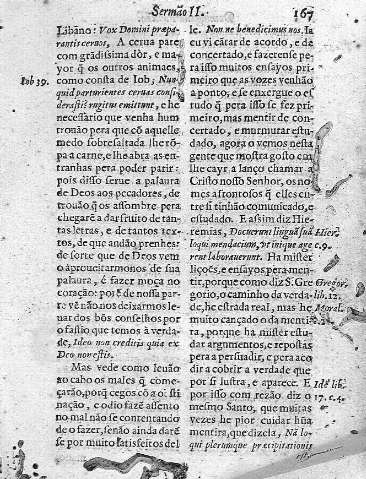 Sermão II.
167
Libano: Vox Domini præpa-
rantis ceruos, A cerua pare
com grãdissima dor, e ma-
yor q̃ os outros animaes,
como consta de Iob; Nun-
Iob 39.
quid parturientes ceruas consi-
derastis rugitu emittunt, e he
necessario que venha hum
trouão pera que cõ aquelle
medo sobresaltada lhe rõ-
pa a carne, e lhe abra as en-
tranhas pera poder parir:
pois disso serue a palaura
de Deos aos pecadores, de
trouão q̃ os assombre pera
chegarẽ a dar fruito de tan-
tas letras, e de tantos tex-
tos, de que andão prenhes:
de sorte que de Deos vem
o aproueitarmonos de sua
palaura, e fazer moça no
coração: porẽ de nossa par-
te vẽ não nos deixarmos le-
uar dos bõs conselhos por
o fastio que temos à verda-
de, Ideo non creditis quia ex
Deo non estis.
Mas vede como leuão
ao cabo os males q̃ come-
çarão, porq̃ cegos cõ a obsti-
nação, e odio fazẽ assento
no mal não se contentando
de o fazer, senão ainda darẽ-
se por muito satisfeitos del
le. Non ne benedicimus nos. Ia
eu vi cãtar de acordo, e de
concertado, e fazerense pe-
ra isso muitos ensayos pri-
meiro que as vozes venhão
a ponto, e se enxergue o es-
tudo q̃ pera isso se fez pri-
meiro, mas mentir de con-
certado, e murmurar estu-
dado, agora o vemos nesta
gente que mostra gosto em
lhe cayr a lanço chamar a
Cristo nosso Senhor, os no-
mes afrontosos q̃ elles en-
tre si tinhão comunicado, e
estudado. E assim diz Hie-
remias, Docuerunt linguã suã
Hier.
loqui mendacium, vt inique age
c. 9.
rent laborauerunt. Ha mister
liçoẽs, e ensayos pera men-
tir, porque como diz S. Gre
Gregor.
gorio, o caminho da verda-
lib. 12.
de, he estrada real, mas he
Moral.
muito cançado o da menti-
ra, porque ha mister estu-
dar argumentos, e repostas
pera a persuadir, e pera aco
dir a cobrir a verdade que
por si lustra, e aparece. E
Idẽ lib.
por isso com rezão diz o
17. c. 4.
mesmo Santo, que muitas
vezes he pior cuidar hũa
mentira, que dizela, Nã lo-
qui plerumque præcipitationis
est,